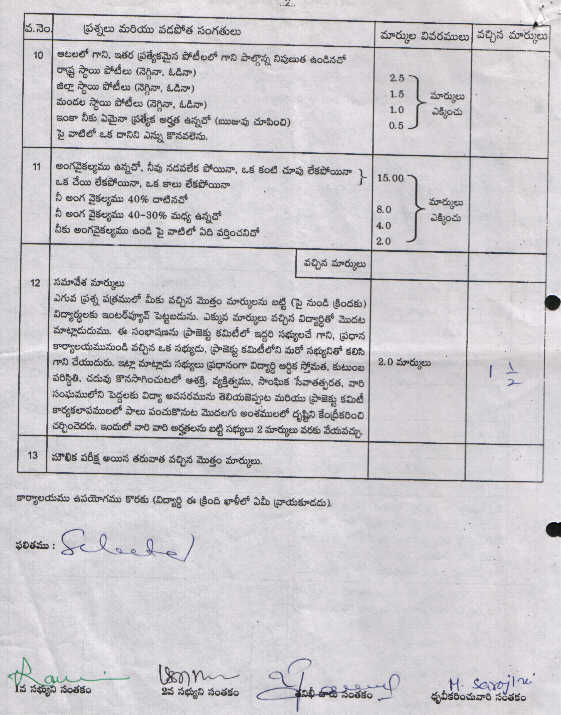 ..2..
వ.నెం. ప్రశ్నలు మరియు వడపోత సంగతులు మార్కుల వివరములు వచ్చిన మార్కులు
10 ఆటలలో గాని, ఇతర ప్రత్యేకమైన పోటీలలో గాని పాల్గొన్న నిపుణత ఉండినదో
రాష్ట్ర స్థాయి పోటీలు (నెగ్గినా, ఓడినా) 2.5
జిల్లా స్థాయి పోటీలు (నెగ్గినా, ఓడినా) 1.5 మార్కులు
మండల స్థాయి పోటీలు (నెగ్గినా, ఓడినా) 1.0 ఎక్కించు
ఇంకా నీకు ఏమైనా ప్రత్యేక అర్హత ఉన్నదో (ఋజువు చూపించి) 0.5
పై వాటిలో ఒక దానిని ఎన్ను కొనవలెను.
11 అంగవైకల్యము ఉన్నదో, నీవు నడవలేక పోయినా, ఒక కంటి చూపు లేకపోయినా
ఒక చేయి లేకపోయినా, ఒక కాలు లేకపోయినా 15.00
నీ అంగ వైకల్యము 40% దాటినదో మార్కులు
నీ అంగ వైకల్యము 40-30% మధ్య ఉన్నదో 8.0 ఎక్కించు
నీకు అంగవైకల్యము ఉండి పై వాటిలో ఏది వర్తించనిదో 4.0
2.0
వచ్చిన మార్కులు
12 సమావేశ మార్కులు
ఎగువ ప్రశ్న పత్రములో మీకు వచ్చిన మొత్తం మార్కులను బట్టి (పై నుండి క్రిందకు)
విద్యార్థులకు ఇంటర్‌వ్యూవ్ పెట్టబడును. ఎక్కువ మార్కులు వచ్చిన విద్యార్థితో మొదట
మాట్లాడుదుము. ఈ సంభాషణను ప్రాజెక్టు కమిటీలో ఇద్దరి సభ్యులచే గాని, ప్రధాన
కార్యాలయమునుండి వచ్చిన ఒక సభ్యుడు, ప్రాజెక్టు కమిటీలోని మరో సభ్యునితో కలిసి
గాని చేయుదురు. ఇట్లా మాట్లాడు సభ్యులు ప్రధానంగా విద్యార్థి ఆర్థిక స్తోమత, కుటుంబ 2.0 మార్కులు 1 1/2
పరిస్థితి, చదువు కొనసాగించుటలో ఆశక్తి, వ్యక్తిత్వము, సాంఘిక సేవాతత్పరత, వారి
సంఘములోని పెద్దలకు విద్యా అవసరమును తెలియజెప్పుట మరియు ప్రాజెక్టు కమిటీ
కార్యకలాపములలో పాలు పంచుకొనుట మొదలగు అంశములలో దృష్టిని కేంద్రీకరించి
చర్చించెదరు. ఇందులో వారి వారి అర్హతలను బట్టి సభ్యులు 2 మార్కులు వరకు వేయవచ్చు.
13 మౌఖిక పరీక్ష అయిన తరువాత వచ్చిన మొత్తం మార్కులు.
కార్యాలయము ఉపయోగము కొరకు (విద్యార్థి ఈ క్రింది ఖాళీలో ఏమీ వ్రాయకూడదు).
ఫలితము : Selected
M. Sarojini
1వ సభ్యుని సంతకం 2వ సభ్యుని సంతకం సంతకం ధృవీకరించువారి సంతకం